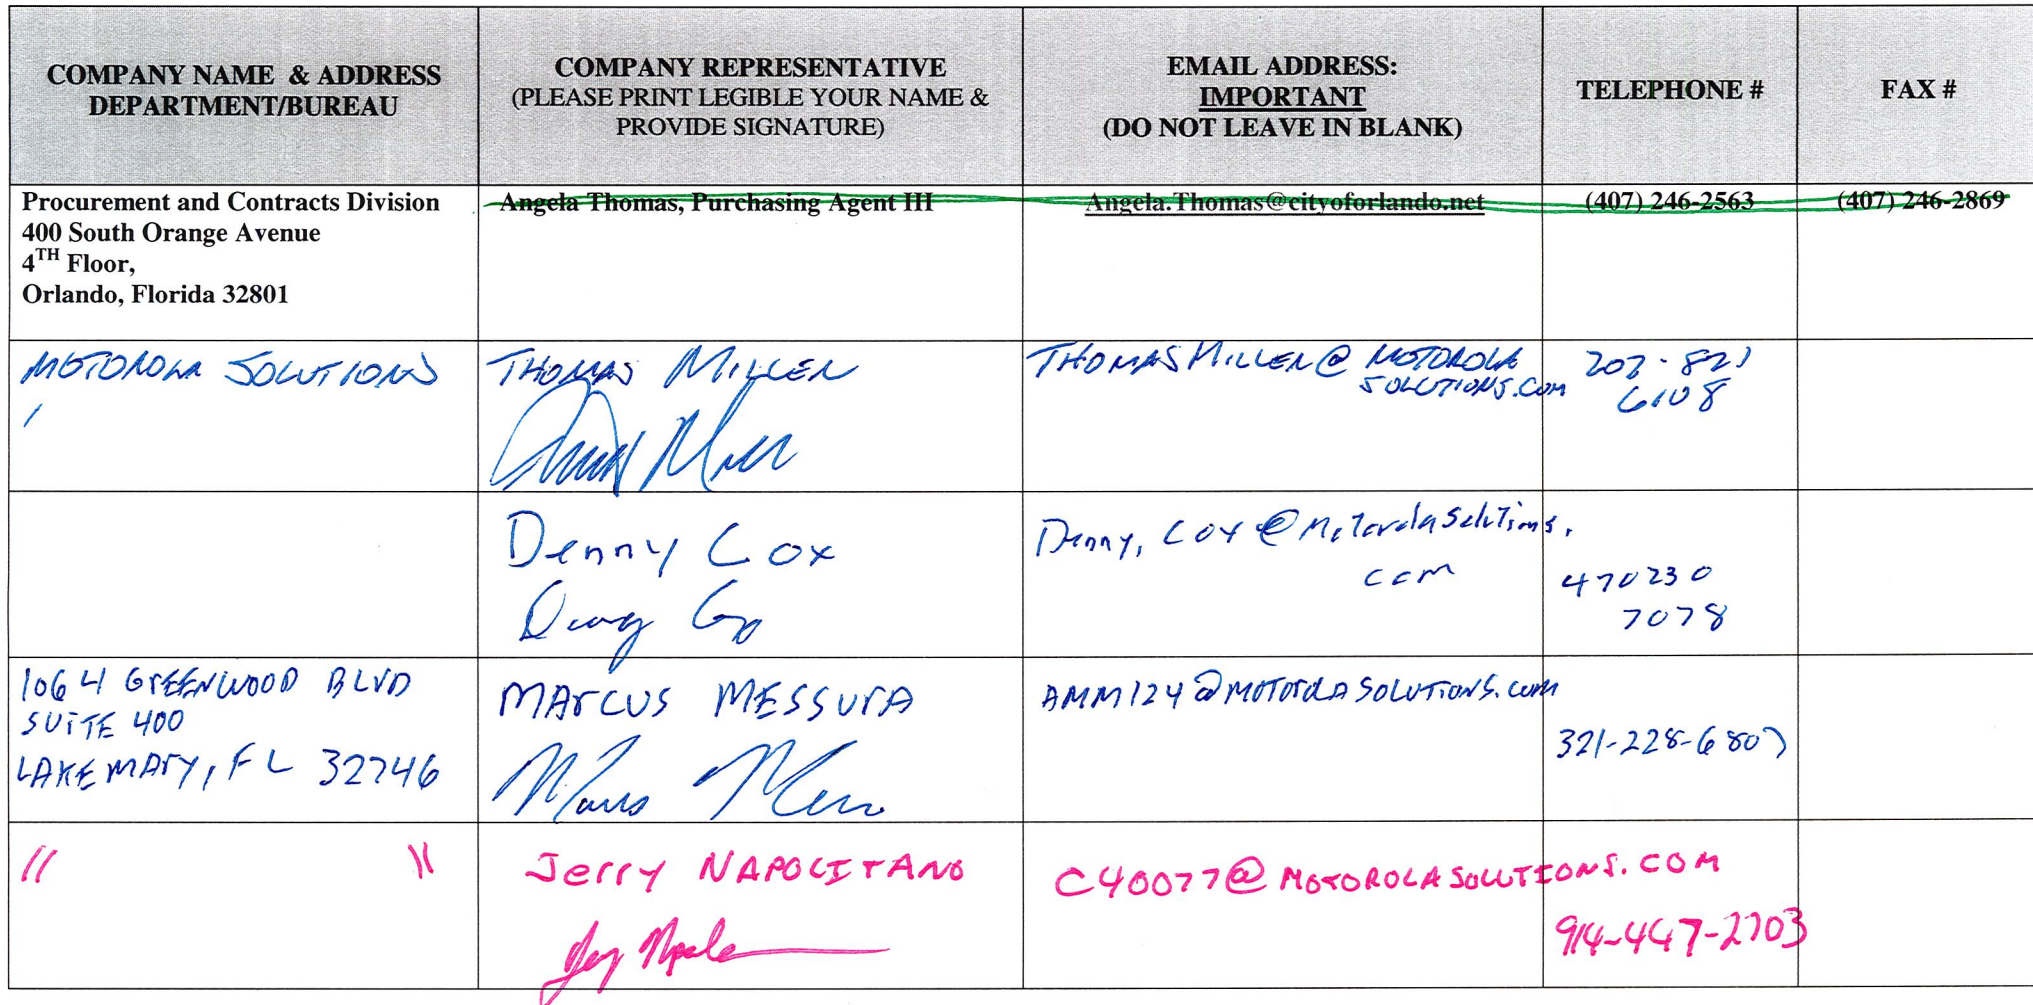 COMPANY NAME & ADDRESS
DEPARTMENT/BUREAU
COMPANY REPRESENTATIVE
(PLEASE PRINT LEGIBLE YOUR NAME &
PROVIDE SIGNATURE)
EMAIL ADDRESS:
IMPORTANT
(DO NOT LEAVE IN BLANK)
TELEPHONE #
FAX #
Procurement and Contracts Division
400 South Orange Avenue
4TH Floor,
Orlando, Florida 32801
Angela Thomas, Purchasing Agent III
Angela.Thomas@cityoforlando.net
(407) 246-2563
(407) 246-2869
MOTOROLA SOLUTIONS
THOMAS MILLER
THOMASMILLER@MOTOROLA
SOLUTIONS.COM
6108
Denny Cox
Denny, Cox@Motorolasolutions.
com
470230
7078
1064 GREENWOOD BLVD
SUITE 400
LAKE MARY, FL 32746
MARCUS MESSURA
AMM124@MOTOROLASOLUTIONS.com
321-228-6807
" "
Jerry NAPOLITANO
C40077@MOTOROLASOLUTIONS.COM
914-447-2703